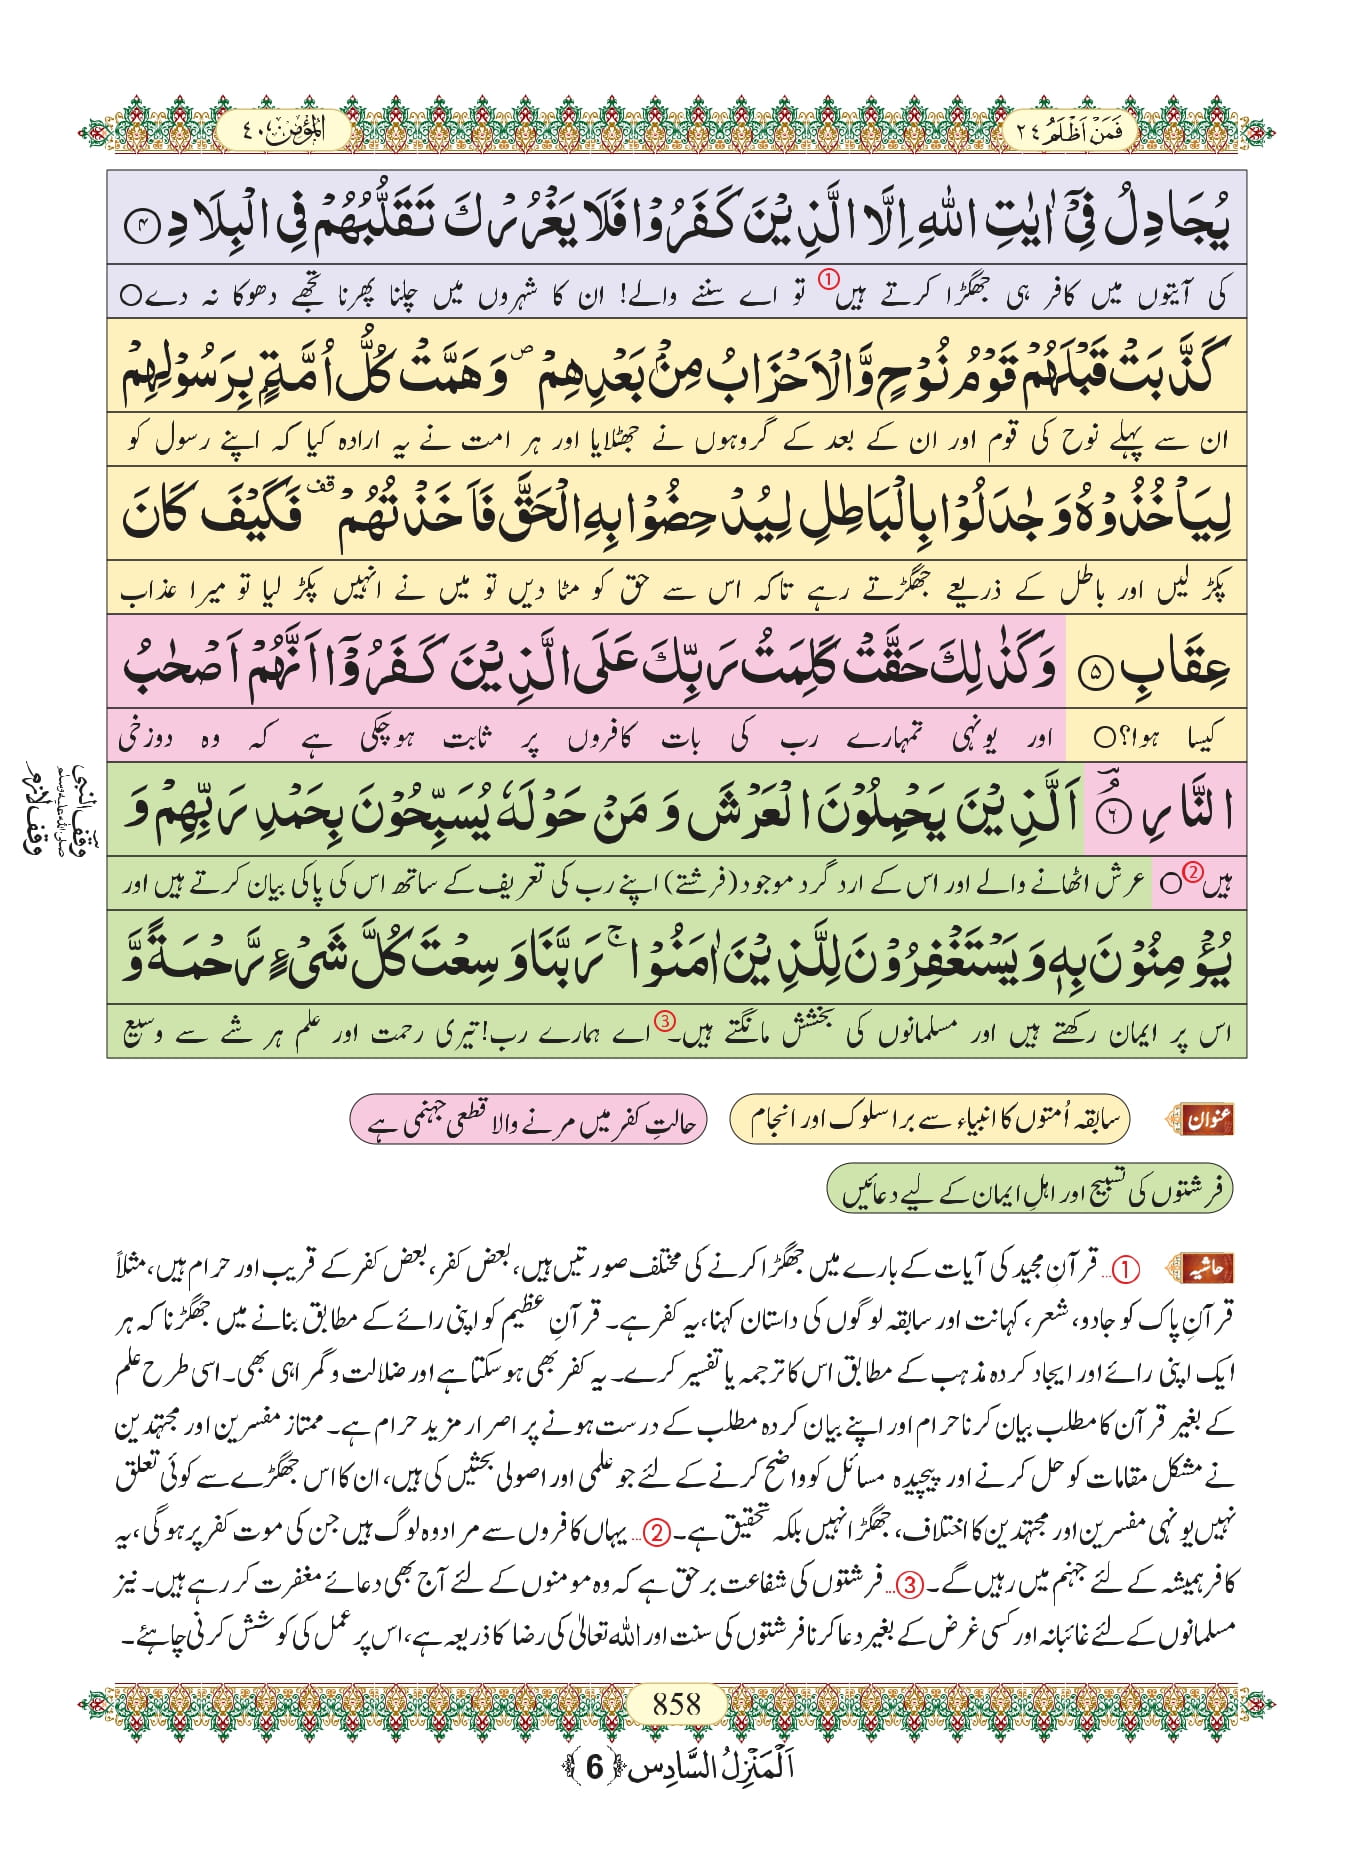 فَمَنْ اَظْلَمُ ٢٤
المؤمن ٤٠
يُجَادِلُ فِيْۤ اٰيٰتِ اللّٰهِ اِلَّا الَّذِيْنَ كَفَرُوْا فَلَا يَغْرُرْكَ تَقَلُّبُهُمْ فِي الْبِلَادِ ﴿۴﴾
کی آیتوں میں کافر ہی جھگڑا کرتے ہیں① تو اے سننے والے! ان کا شہروں میں چلنا پھرنا تجھے دھوکا نہ دے○
كَذَّبَتْ قَبْلَهُمْ قَوْمُ نُوْحٍ وَّالْاَحْزَابُ مِنْۢ بَعْدِهِمْ ۪ وَهَمَّتْ كُلُّ اُمَّةٍۭ بِرَسُوْلِهِمْ
ان سے پہلے نوح کی قوم اور ان کے بعد کے گروہوں نے جھٹلایا اور ہر امت نے یہ ارادہ کیا کہ اپنے رسول کو
لِيَاْخُذُوْهُ وَجٰدَلُوْا بِالْبَاطِلِ لِيُدْحِضُوْا بِهِ الْحَقَّ فَاَخَذْتُهُمْ قف فَكَيْفَ كَانَ
پکڑ لیں اور باطل کے ذریعے جھگڑتے رہے تاکہ اس سے حق کو مٹا دیں تو میں نے انہیں پکڑ لیا تو میرا عذاب
عِقَابِ ﴿۵﴾ وَكَذٰلِكَ حَقَّتْ كَلِمَتُ رَبِّكَ عَلَى الَّذِيْنَ كَفَرُوْۤا اَنَّهُمْ اَصْحٰبُ
کیسا ہوا؟○ اور یونہی تمہارے رب کی بات کافروں پر ثابت ہوچکی ہے کہ وہ دوزخی
النَّارِ ﴿۶﴾ۘ اَلَّذِيْنَ يَحْمِلُوْنَ الْعَرْشَ وَمَنْ حَوْلَهٗ يُسَبِّحُوْنَ بِحَمْدِ رَبِّهِمْ وَ
وقف النبی صلی اللہ علیہ وسلم
وقف لازم
ہیں②○ عرش اٹھانے والے اور اس کے ارد گرد موجود (فرشتے) اپنے رب کی تعریف کے ساتھ اس کی پاکی بیان کرتے ہیں اور
يُؤْمِنُوْنَ بِهٖ وَيَسْتَغْفِرُوْنَ لِلَّذِيْنَ اٰمَنُوْا ۚ رَبَّنَا وَسِعْتَ كُلَّ شَيْءٍ رَّحْمَةً وَّ
اس پر ایمان رکھتے ہیں اور مسلمانوں کی بخشش مانگتے ہیں۔③ اے ہمارے رب! تیری رحمت اور علم ہر شے سے وسیع
عنوان سابقہ اُمتوں کا انبیاء سے برا سلوک اور انجام حالتِ کفر میں مرنے والا قطعی جہنمی ہے
فرشتوں کی تسبیح اور اہلِ ایمان کے لیے دعائیں
حاشیہ ①... قرآنِ مجید کی آیات کے بارے میں جھگڑا کرنے کی مختلف صورتیں ہیں، بعض کفر، بعض کفر کے قریب اور حرام ہیں، مثلاً
قرآنِ پاک کو جادو، شعر، کہانت اور سابقہ لوگوں کی داستان کہنا، یہ کفر ہے۔ قرآنِ عظیم کو اپنی رائے کے مطابق بنانے میں جھگڑنا کہ ہر
ایک اپنی رائے اور ایجاد کردہ مذہب کے مطابق اس کا ترجمہ یا تفسیر کرے۔ یہ کفر بھی ہو سکتا ہے اور ضلالت و گمراہی بھی۔ اسی طرح علم
کے بغیر قرآن کا مطلب بیان کرنا حرام اور اپنے بیان کردہ مطلب کے درست ہونے پر اصرار مزید حرام ہے۔ ممتاز مفسرین اور مجتہدین
نے مشکل مقامات کو حل کرنے اور پیچیدہ مسائل کو واضح کرنے کے لئے جو علمی اور اصولی بحثیں کی ہیں، ان کا اس جھگڑے سے کوئی تعلق
نہیں یونہی مفسرین اور مجتہدین کا اختلاف، جھگڑا نہیں بلکہ تحقیق ہے۔ ②... یہاں کافروں سے مراد وہ لوگ ہیں جن کی موت کفر پر ہوگی، یہ
کافر ہمیشہ کے لئے جہنم میں رہیں گے۔ ③... فرشتوں کی شفاعت برحق ہے کہ وہ مومنوں کے لئے آج بھی دعائے مغفرت کر رہے ہیں۔ نیز
مسلمانوں کے لئے غائبانہ اور کسی غرض کے بغیر دعا کرنا فرشتوں کی سنت اور اللہ تعالیٰ کی رضا کا ذریعہ ہے، اس پر عمل کی کوشش کرنی چاہئے۔
858
اَلْمَنْزِلُ السَّادِس ﴿6﴾